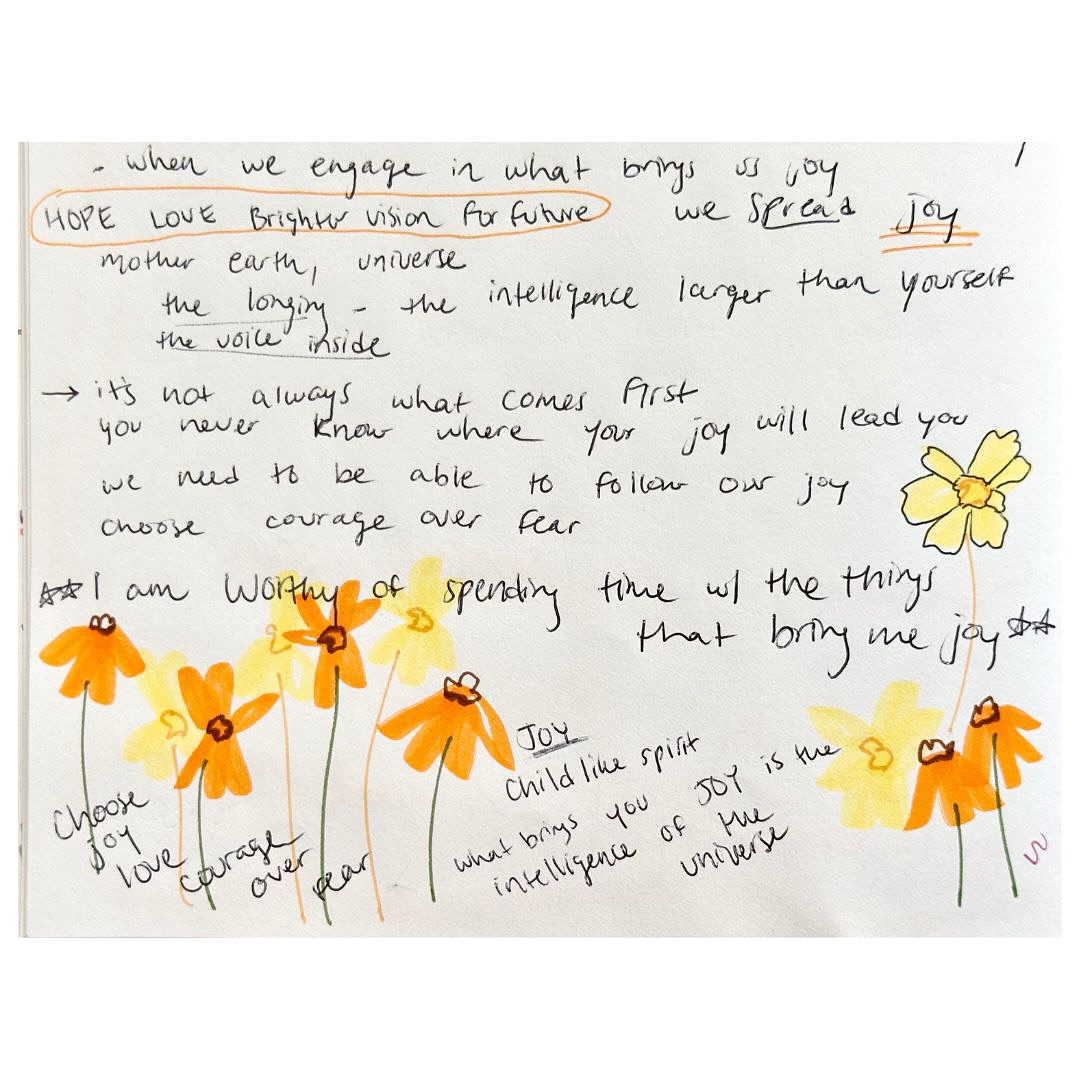 - when we engage in what brings us joy
HOPE LOVE Brighter vision for future we spread joy
mother earth, universe
the longing - the intelligence larger than yourself
the voice inside
→ it's not always what comes first
you never know where your joy will lead you
we need to be able to follow our joy
choose courage over fear
☆☆ I am worthy of spending time w/ the things
that bring me joy ☆☆
Choose
joy
love
courage
over
fear
JOY
Child like spirit
what brings you JOY is the
intelligence of the
universe